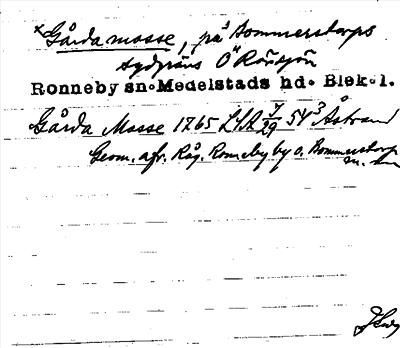 ×Gårda mosse, på Bommerstorps
sydgräns Ö Rörsjön
Ronneby sn. Medelstads hd. Blek.l.
Gårda Mosse 1765 LSA 54³ Åstrand
Geom. afr. Råg. Ronneby by o. Bommerstorp
m. m.